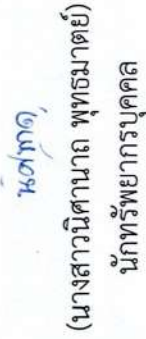 (นางสาวนิศานาถ พุทธมาตย์)
นักทรัพยากรบุคคล